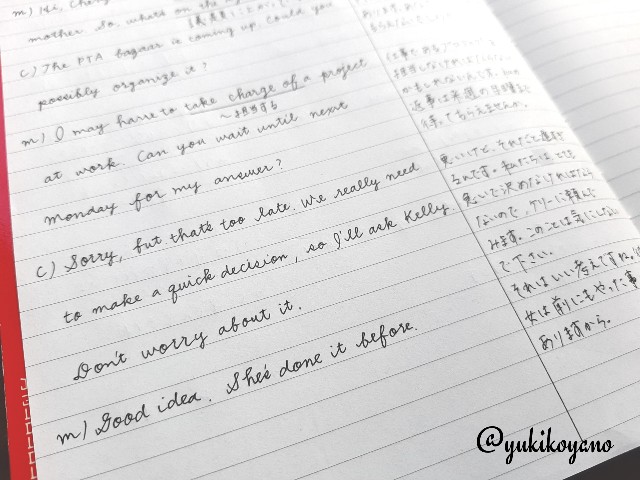 m) Hi,
mother. So, what's on the
C) The PTA bazaar is coming up. Could you
possibly organize it?
m) I may have to take charge of a project
〜担当する
at work. Can you wait until next
monday for my answer?
C) Sorry, but that's too late. We really need
to make a quick decision, so I'll ask Kelly.
Don't worry about it.
m) Good idea. She's done it before.
待ってもらえませんか。
悪いけど、それだと遅
急いで決めなければなら
ないので、ケリーに頼んで
みます。このことは気にしない
で下さい。
それはいい考えですね。
女は前にもやった事
ありますから。
@yukikoyano